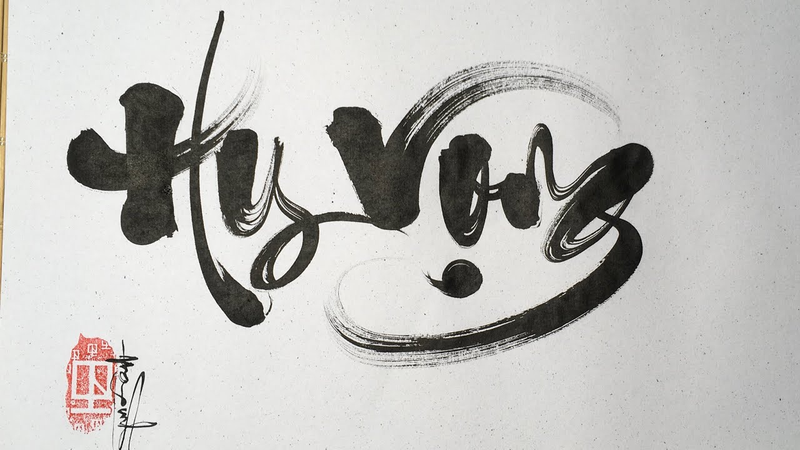 Hy Vọng